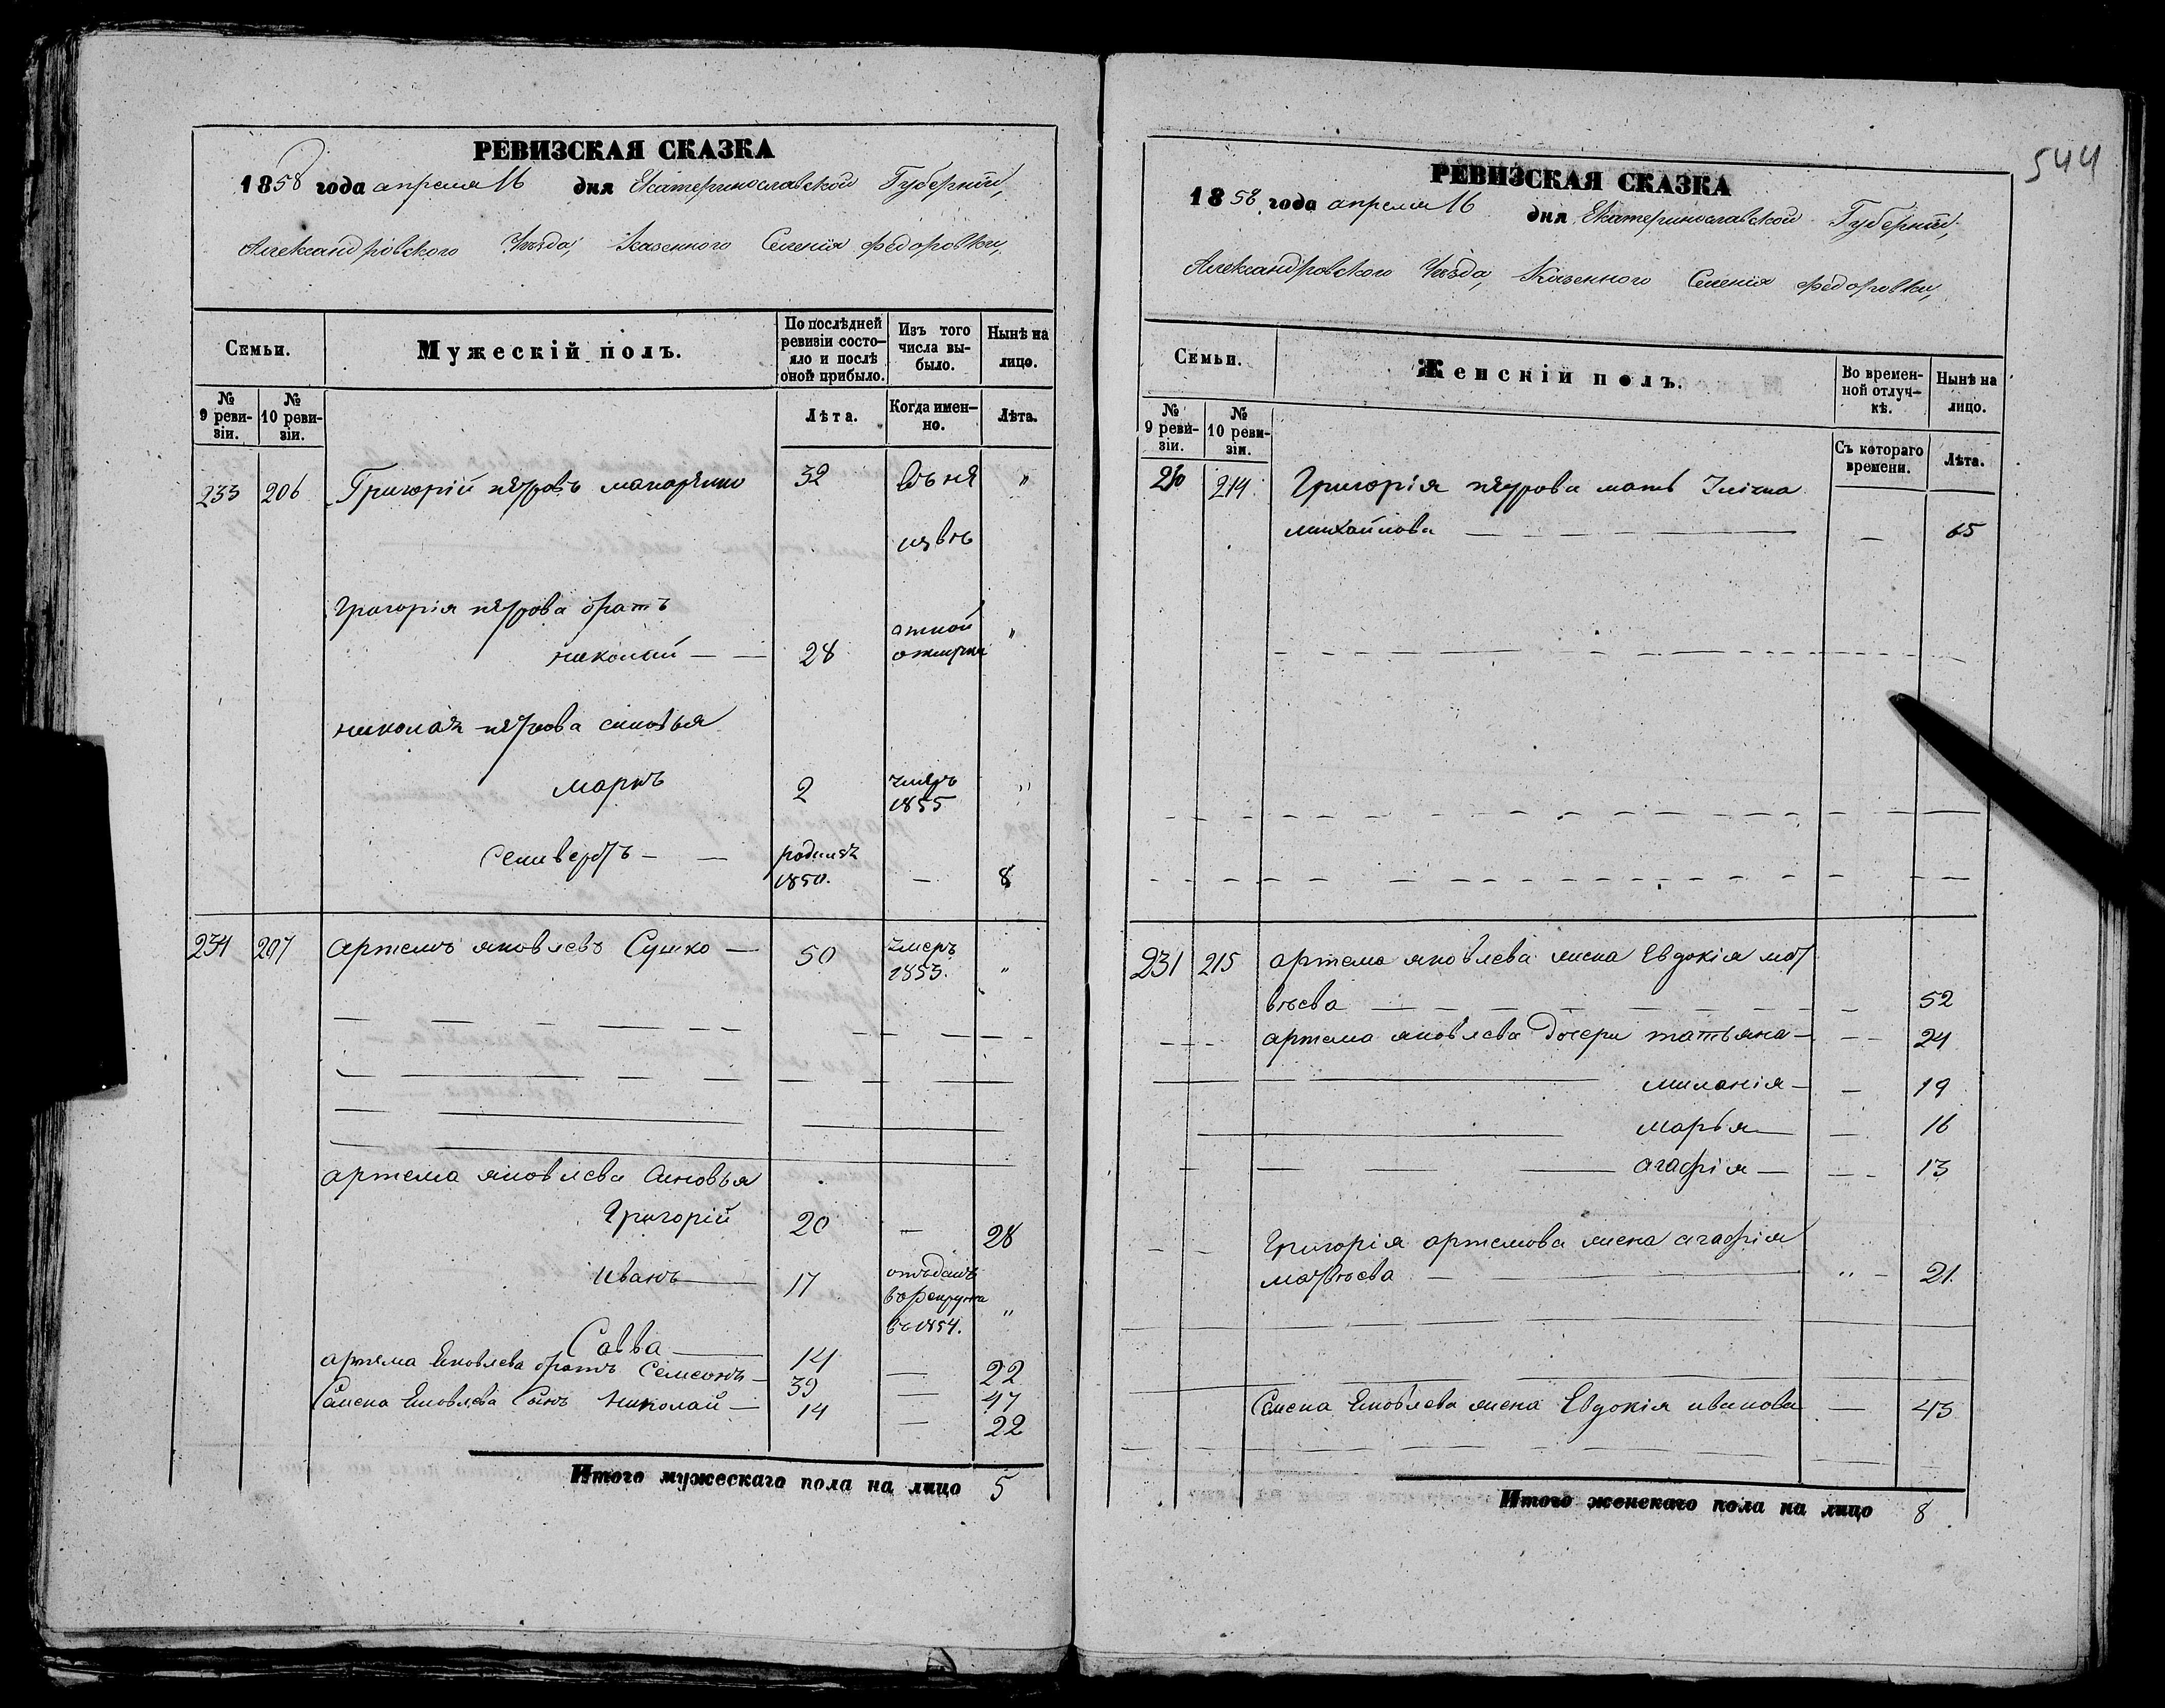 РЕВИЗСКАЯ СКАЗКА
1858 года апреля 16 дня Екатеринославской Губернıи,
Александровского Уѣзда, Казенного Селенiя Федоровки,
Семьи.
Мужескiй полъ.
По послѣдней ревизiи состо-
яло и послѣ
оной прибыло.
Изъ того
числа вы-
было.
Нынѣ на
лицо.
№
9 реви-
зiи.
№
10 реви-
зiи.
Лѣта.
Когда имен-
но.
Лѣта.
233 206 Григорiй петровъ макаренко 32 "
извѣ
Григорiя петрова братъ
николай — — 28 "
николая петрова синовья
марко 2 умеръ
1855 "
Селивестръ — — родился
1850. — 8
234 207 артемъ яковлевъ Сушко — 50 умеръ
1853. "
артема яковлева синовья
Григорiй 20 — 28
Иванъ — 17 отъданъ
в рекрута
въ 1854. "
Савва — 14 — 22
артема Яковлева братъ Семенъ — 39 — 47
Семена Яковлева Сынъ Николай — 14 — 22
Итого мужескаго пола на лицо 5
544
РЕВИЗСКАЯ СКАЗКА
1858 года апреля 16 дня Екатеринославской Губернıи,
Александровского Уѣзда, Казенного Селенiя Федоровки,
Семьи.
Женскiй полъ.
Во времен-
ной отлуч-
кѣ.
Нынѣ на
лицо.
№
9 реви-
зiи.
№
10 реви-
зiи.
Съ котораго
времени.
Лѣта.
230 214 Григорiя петрова мать
михайлова — 65
231 215 артема яковлева жена Евдокiя мат
вѣева — 52
артема яковлева дочери татьяна — 24
миланiя — 19
марья — 16
агафiя — 13
Григорiя артемова жена агафiя
матвѣева " — 21
Семена Яковлева жена Евдокiя иванова — 43
Итого женскаго пола на лицо 8